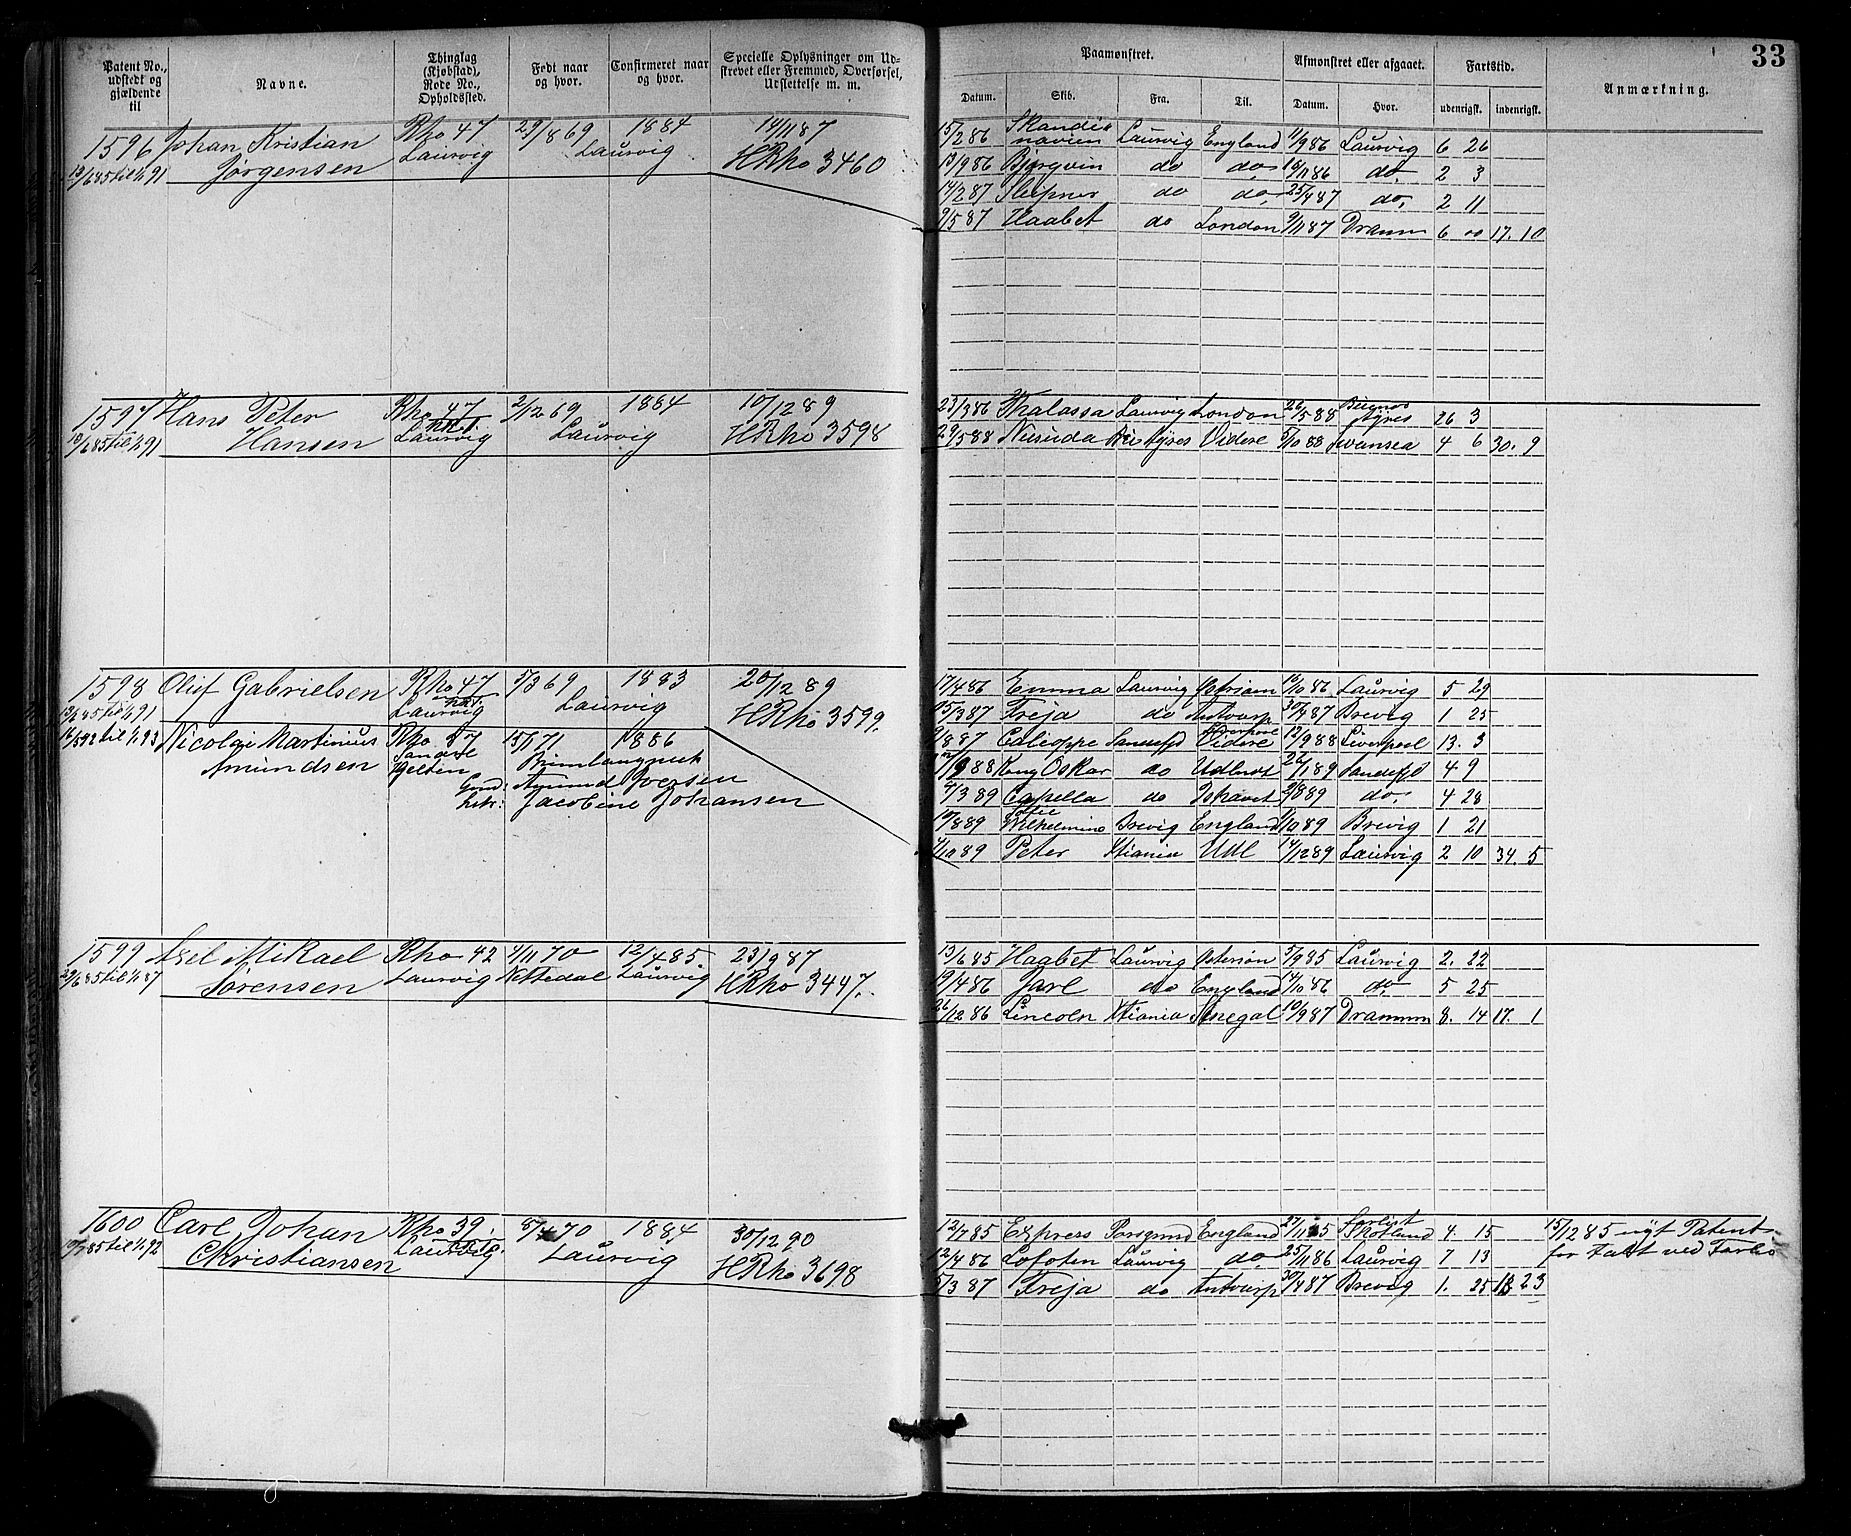 33
Patent No., udstedt og gjældende til
Navne.
Thinglag (Kjøbstad), Rode No., Opholdssted.
Født naar og hvor.
Confirmeret naar og hvor.
Specielle Oplysninger om Udstrevet eller Fremmed, Overførsel, Udslettelse m. m.
Paamønstret.
Afmønstret eller afgaaet.
Fartstid.
Anmærkning.
Datum. Skib. Fra. Til. Datum. Hvor. udenrigsk. indenrigsk.
1596 Johan Kristian Rho 47 29/8 69 1884 14/11 87
13/6 85 til 1/1 91 Jørgensen Laurvig Laurvig HRho 3460
15/2 86 Skandinavien Laurvig England 11/9 86 Laurvig 6 26
13/9 86 Bjørgvin do do 16/11 86 do. 2 3
14/2 87 Sleipner do do. 25/4 87 do. 2 11
9/5 87 Haabet do London 9/11 87 Dramm 6 00 17. 10
1597 Hans Peter Rho 47 2/12 69 1884 10/12 89
13/6 85 til 1/1 91 Hansen Laurvig Laurvig HRho 3598
23/3 86 Thalassa Laurvig London 26/5 88 Buenos Ayres 26 3
29/5 88 Bu Ayres Videre 5/10 88 Swansea 4 6 30. 9
1598 Oluf Gabrielsen Rho 47 5/3 69 1883 20/12 89
13/6 85 til 1/1 91 Laurvig Laurvig HRho 3599.
16/5 92 til 1/1 93 Nicolai Martinius Rho 15/1 71 1886
Amundsen
Amund Iversen
Jacobine Johansen
17/4 86 Emma Laurvig 13/10 86 Laurvig 5 29
15/3 87 Freja do Antwarp 30/4 87 Brevig 1 25
9/8 87 Calioppe Sandefjd Liverpool Videre 12/9 88 Liverpool 13. 3
17/9 88 Kong Oskar do Udlandet 26/1 89 Sandefjd 4 9
4/3 89 Capella do Ishavet 2/8 89 do. 4 28
10/8 89 Wilhelmine Brevig England 1/10 89 Brevig 1 21
4/10 89 Peter Xtiania Udl 14/12 89 Laurvig 2 10 34. 5
1599 Axel Mikael Rho 42 4/11 70 12/4 85. 23/9 87
29/6 85 til 1/1 87 Sørensen Laurvig Nottedal Laurvig HRho 3447.
13/6 85 Haabet Laurvig Østersøn 5/9 85 Laurvig 2. 22
19/4 86 Jarl do England 14/10 86 do. 5 25
26/12 86 Lincoln Xtiania Senegal 10/9 87 Drammn 8. 14 17. 1
1600 Carl Johan Rho 39. 8/4 70 1884 30/12 90
10/7 85 til 1/1 92 Christiansen Laurvig Laurvig HRho 3698
12/7 85 Express Porsgrund England 27/11 85 Forlist Skotland 4 15 15/12 85 nyt Patent
12/4 86 Lofoten Laurvig do 25/11 86 Laurvig 7 13 for Tabt ved Forlis
5/3 87 Freja do Antwarp 30/4 87 Brevig 1. 25 13 23